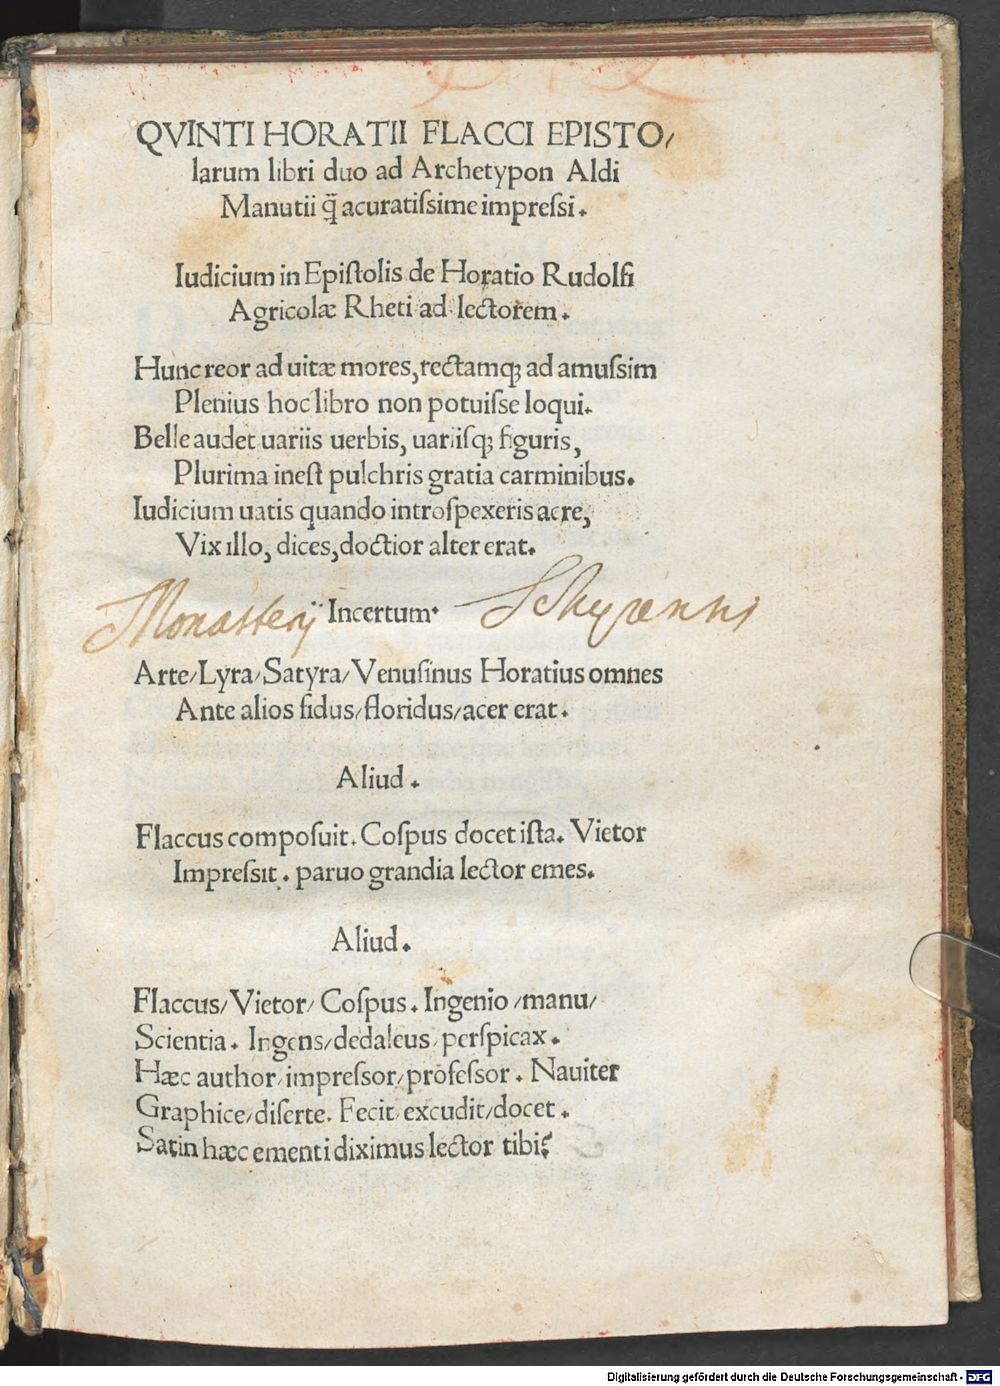 QVINTI HORATII FLACCI EPISTO/
larum libri duo ad Archetypon Aldi
Manutii q̃ acuratiſsime impreſsi.
Iudicium in Epiſtolis de Horatio Rudolfi
Agricolæ Rheti ad lectorem.
Hunc reor ad uitæ mores, rectamq; ad amuſsim
Plenius hoc libro non potuiſse loqui.
Belle audet uariis uerbis, uariiſq; figuris,
Plurima ineſt pulchris gratia carminibus.
Iudicium uatis quando introſpexeris acre,
Vix illo, dices, doctior alter erat.
Monasterij Incertum. Schyrensis
Arte/Lyra/Satyra/Venuſinus Horatius omnes
Ante alios fidus/floridus/acer erat.
Aliud.
Flaccus compoſuit. Coſpus docet iſta. Vietor
Impreſsit. paruo grandia lector emes.
Aliud.
Flaccus/Vietor/Coſpus. Ingenio/manu/
Scientia. Ingens/dedaleus/perſpicax.
Hæc author/impreſsor/profeſsor. Nauiter
Graphice/diſerte. Fecit/excudit/docet.
Satin hæc ementi diximus lector tibi?
Digitalisierung gefördert durch die Deutsche Forschungsgemeinschaft - DFG